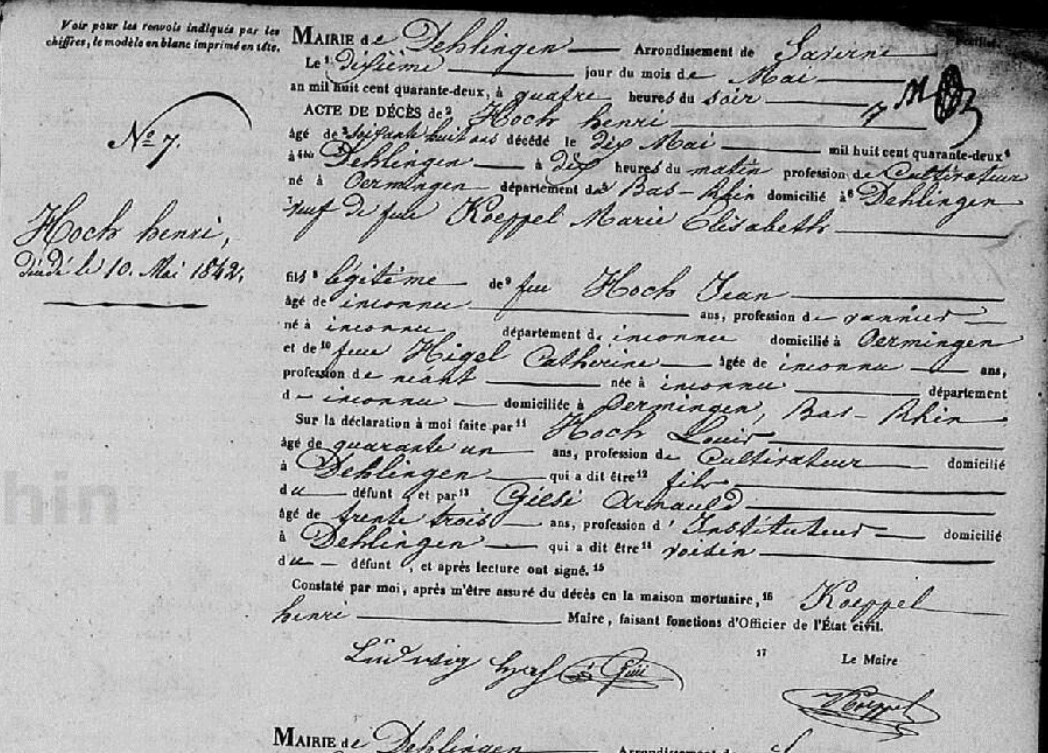 Voir pour les renvois indiqués par les
chiffres, le modèle en blanc imprimé en tête.
MAIRIE de Dehlingen Arrondissement de Saverne
Le dixième jour du mois de Mai
an mil huit cent quarante-deux, à quatre heures du soir
ACTE DE DÉCÈS de 2 Hoch henri
âgé de 3 soixante huit ans décédé le dix Mai mil huit cent quarante-deux 4
à Dehlingen à dix heures du matin profession de Cultivateur
né à Oermingen département du Bas-Rhin domicilié à 6 Dehlingen
7 veuf de feue Koeppel Marie Elisabeth
N° 7.
Hoch henri,
décédé le 10. Mai 1842.
fils 8 légitime de 9 feu Hoch Jean
âgé de inconnu ans, profession de vannier
né à inconnu département d. inconnu domicilié à Oermingen
et de 10 feue Higel Catherine âgée de inconnu ans,
profession de néant née à inconnu département
d inconnu domiciliée à Oermingen, Bas-Rhin
Sur la déclaration à moi faite par 11 Hoch Louis
âgé de quarante un ans, profession de Cultivateur domicilié
à Dehlingen qui a dit être 12 fils
du défunt, et par 13 Giesi Arnauld
âgé de trente trois ans, profession d' Instituteur domicilié
à Dehlingen qui a dit être 14 voisin
du défunt, et après lecture ont signé. 15
Constaté par moi, après m'être assuré du décès en la maison mortuaire, 16 Koeppel
henri Maire, faisant fonctions d'Officier de l'État civil.
17 Le Maire
Ludwig
Koeppel
MAIRIE de Dehlingen Arrondissement d